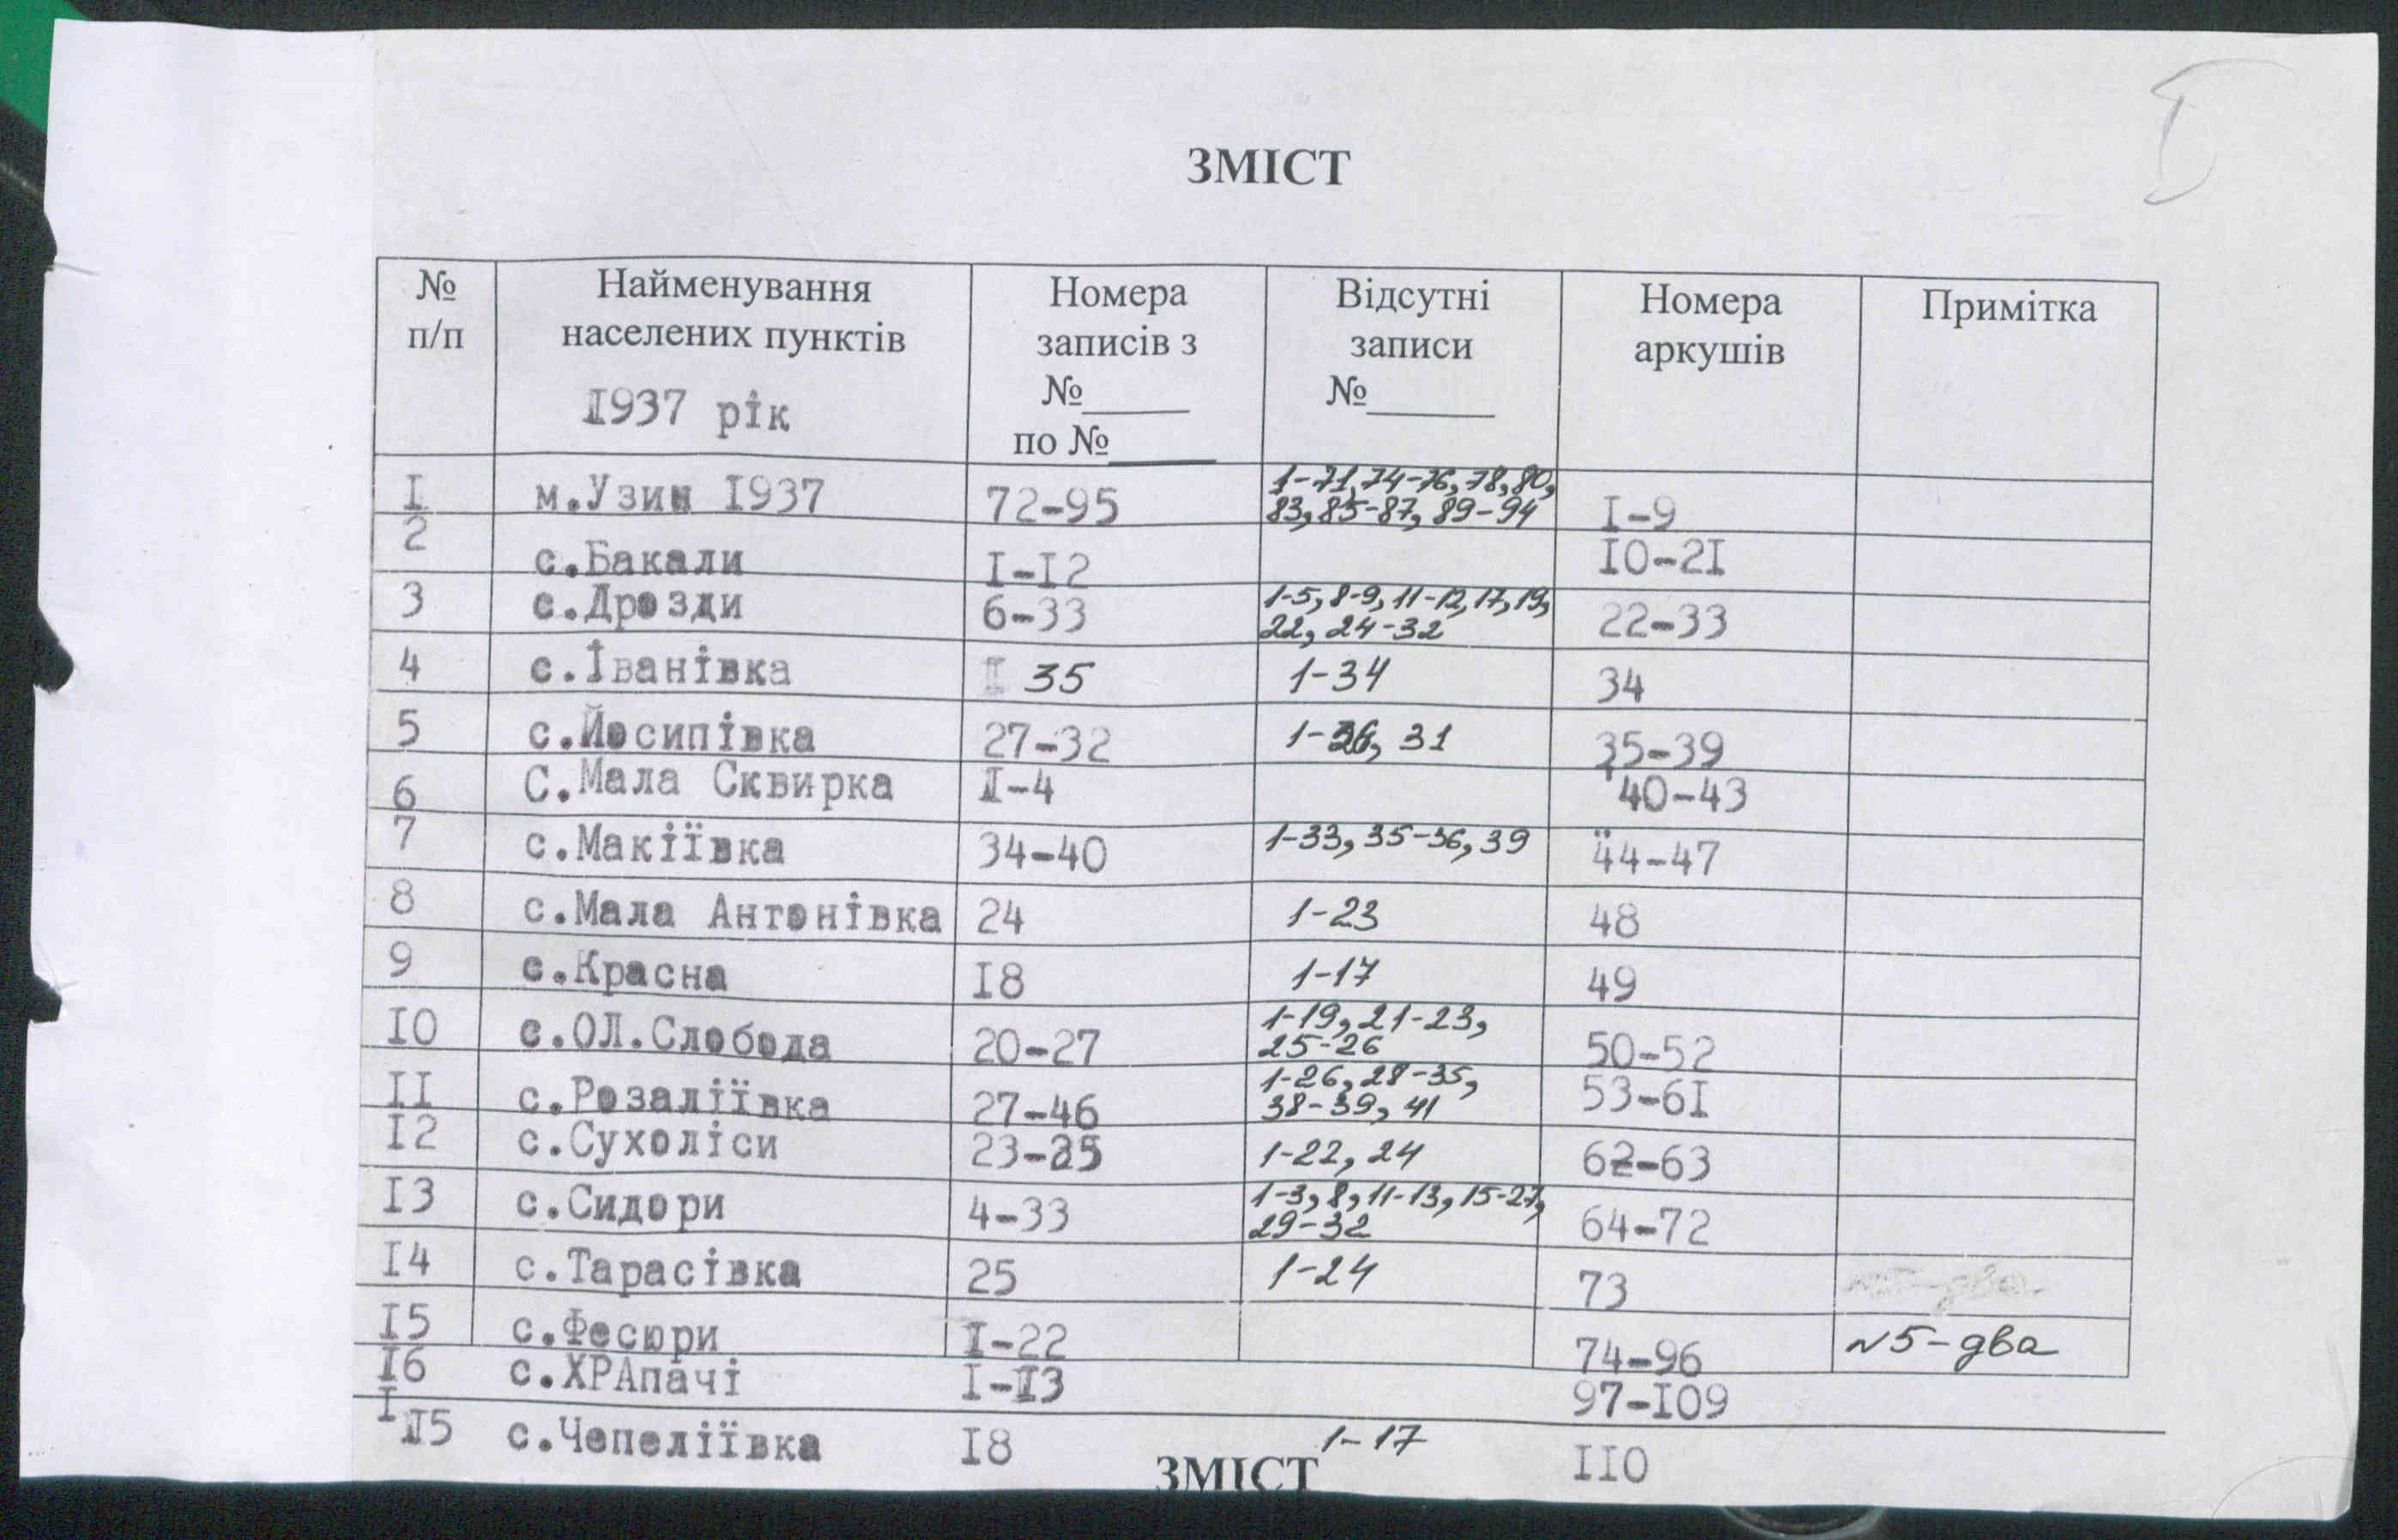 ЗМІСТ
№ п/п Найменування населених пунктів 1937 рік Номера записів з №______ по №______ Відсутні записи №______ Номера аркушів Примітка
I м.Узин I937 72-95 1-71, 74-76, 78, 80, 83, 85-87, 89-94 I-9
2 с.Бакали I-I2 I0-2I
3 с.Дрозди 6-33 1-5, 8-9, 11-12, 17, 19, 22, 24-32 22-33
4 с.Іванівка 35 1-34 34
5 с.Йосипівка 27-32 1-26, 31 35-39
6 С.Мала Сквирка I-4 40-43
7 с.Макіївка 34-40 1-33, 35-36, 39 44-47
8 с.Мала Антонівка 24 1-23 48
9 с.Красна I8 1-17 49
I0 с.ОЛ.Слобода 20-27 1-19, 21-23, 25-26 50-52
II с.Розаліївка 27-46 1-26, 28-35, 38-39, 41 53-6I
I2 с.Сухоліси 23-25 1-22, 24 62-63
I3 с.Сидори 4-33 1-3, 8, 11-13, 15-27, 29-32 64-72
I4 с.Тарасівка 25 1-24 73
I5 с.Фесюри I-22 74-96 №5-два
I6 с.ХРАпачі I-I3 97-I09
I5 с.Чепеліївка I8 1-17 II0
ЗМІСТ